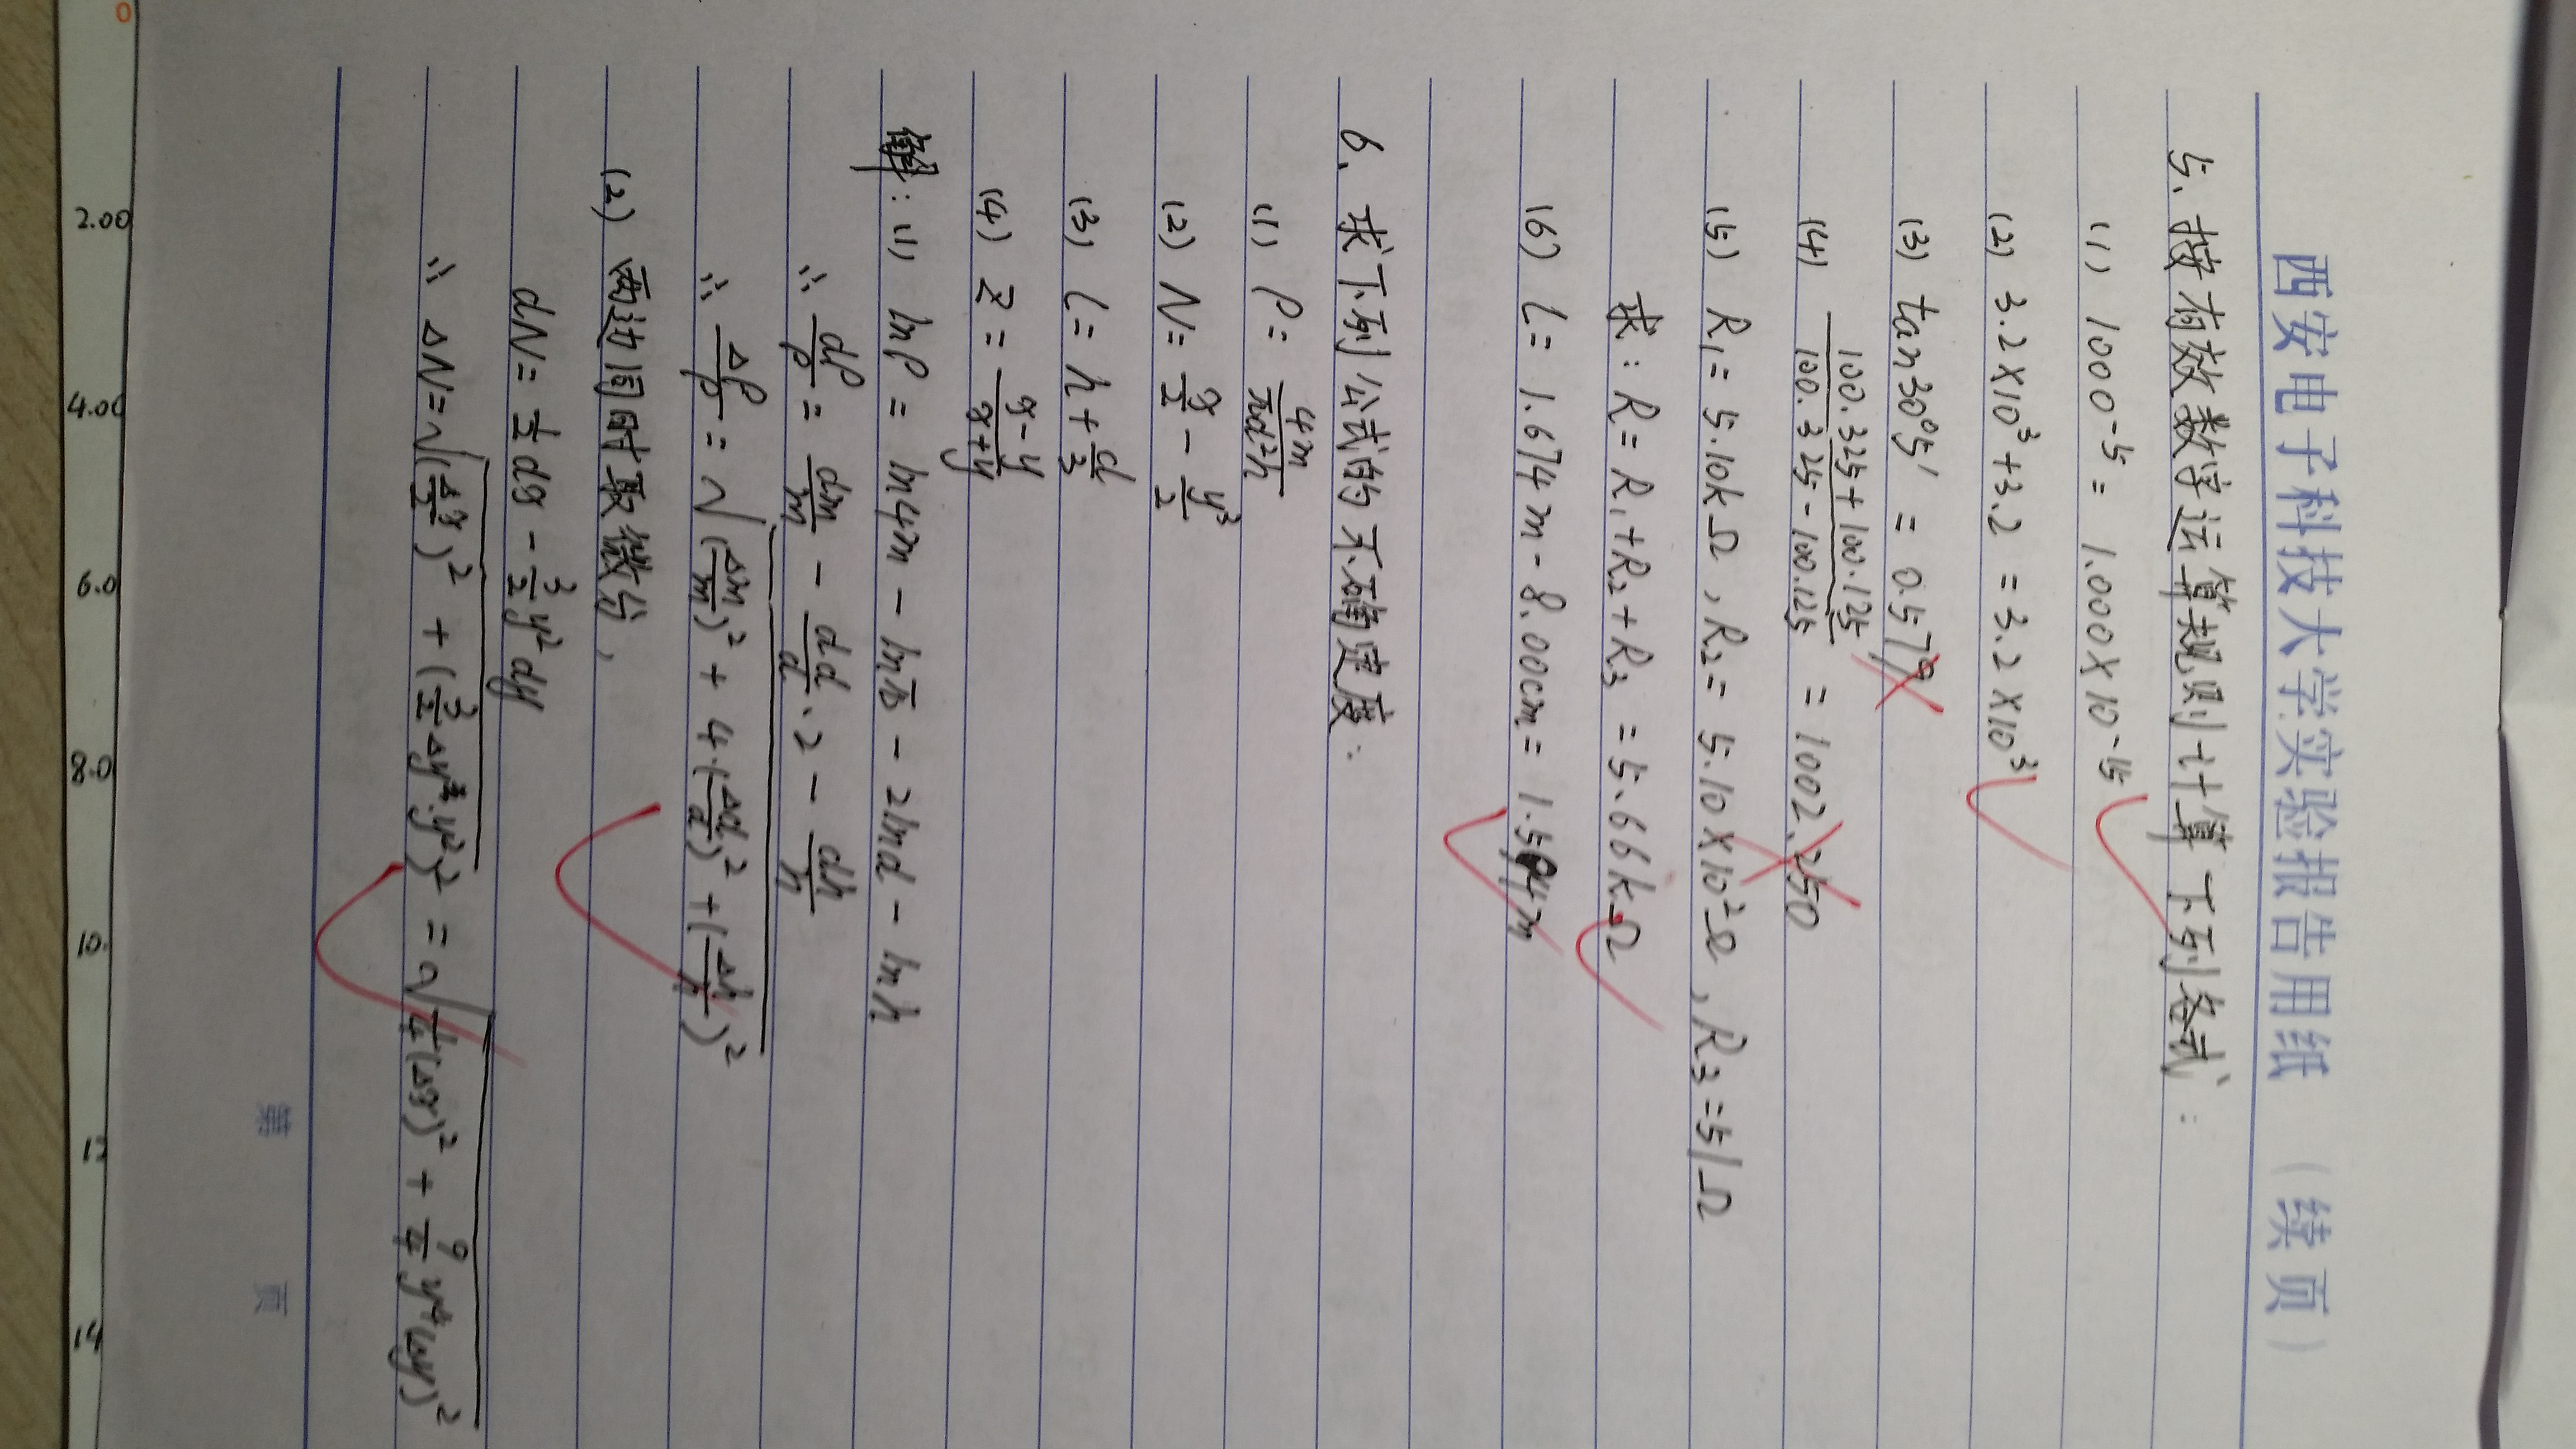 西安电子科技大学实验报告用纸（续页）
5、按有效数字运算规则计算下列各式：
(1) 1000⁻⁵ = 1.000×10⁻¹⁵
(2) 3.2×10³+3.2 = 3.2×10³
(3) tan30°5′ = 0.579
(4) (100.325+100.125)/(100.325-100.125) = 1002.250
(5) R₁= 5.10kΩ , R₂= 5.10×10²Ω , R₃=51Ω
求: R= R₁+R₂+R₃ = 5.66kΩ
(6) L= 1.674m-8.00cm= 1.594m
6、求下列公式的不确定度：
(1) ρ= 4m/πd²h
(2) N= x/2 - y³/2
(3) L= h+ d/3
(4) Z= (x-y)/(x+y)
解: (1) lnρ= ln4m - lnπ - 2lnd - lnh
∴ dρ/ρ = dm/m - dd/d·2 - dh/h
∴ Δρ/ρ = √((Δm/m)² + 4·(Δd/d)² + (Δh/h)²)
(2) 两边同时取微分，
dN= 1/2 dx - 3/2 y²dy
∴ ΔN=√((Δx/2)² + (3/2 Δy·y²)²) = √(1/4(Δx)² + 9/4 y⁴(Δy)²)
第 页
0
2.00
4.00
6.0
8.0
10.
12
14